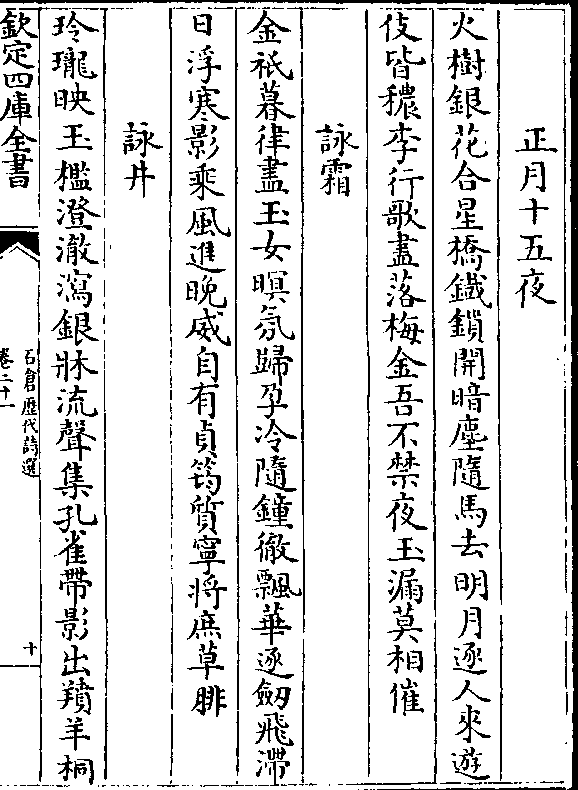 正月十五夜
火樹銀花合星橋鐵鎖開暗塵隨馬去明月逐人來遊
伎皆穠李行歌盡落梅金吾不禁夜玉漏莫相催
詠霜
金祇暮律盡玉女暝氛歸孕冷隨鐘徹飄華逐劒飛滯
日浮寒影乘風進晚威自有貞筠質寧將庶草腓
詠井
玲瓏映玉檻澄澈瀉銀牀流聲集孔雀帶影出羵羊桐
欽定四庫全書
石倉歷代詩選
卷二十一
十